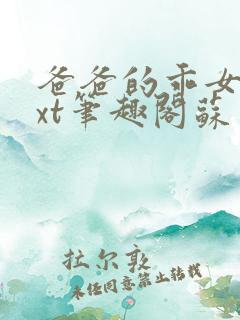 爸爸的乖女
xt筆趣閣蘇
拉尔敦
未经同意禁止转载